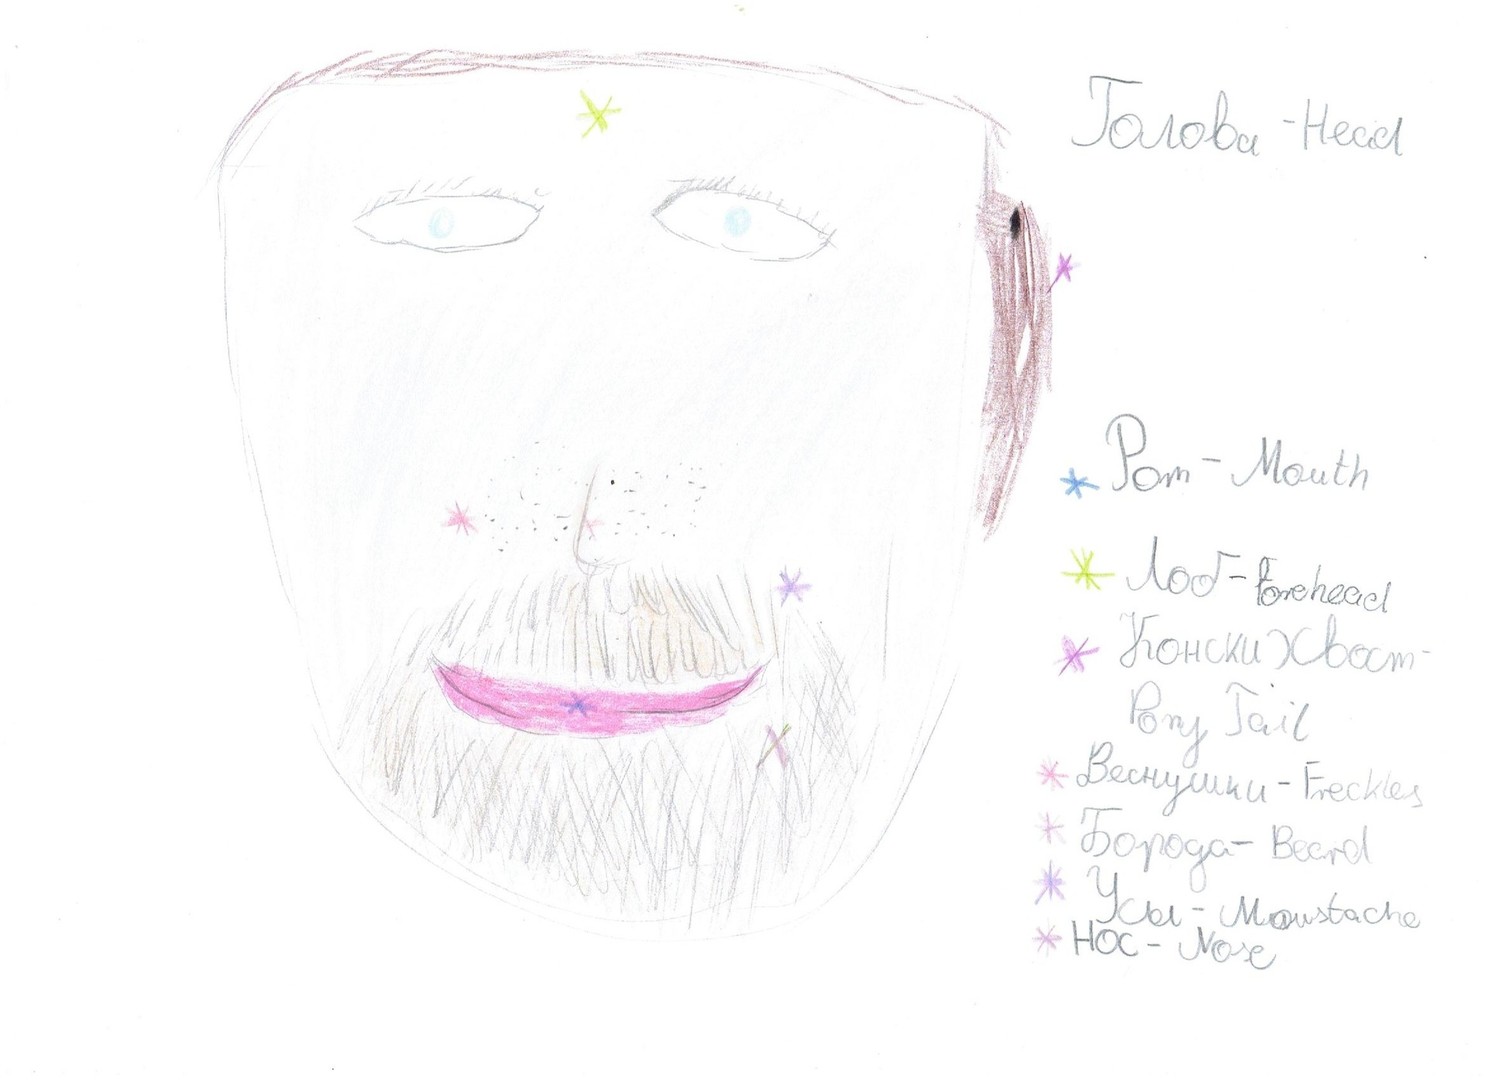 Голова - Head
Рот - Mouth
Лоб - Forehead
Конски Хвост -
Pony Tail
Веснушки - Freckles
Борода - Beard
Усы - Moustache
Нос - Nose